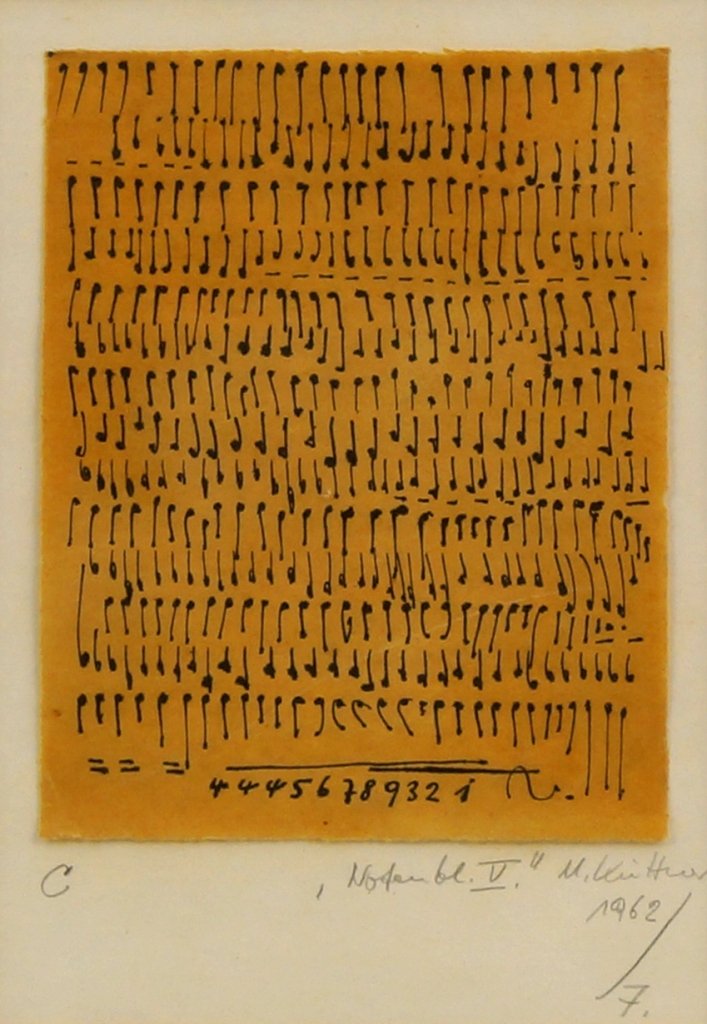 4445678932 1
C „Notenbl. V."
1962/
7.